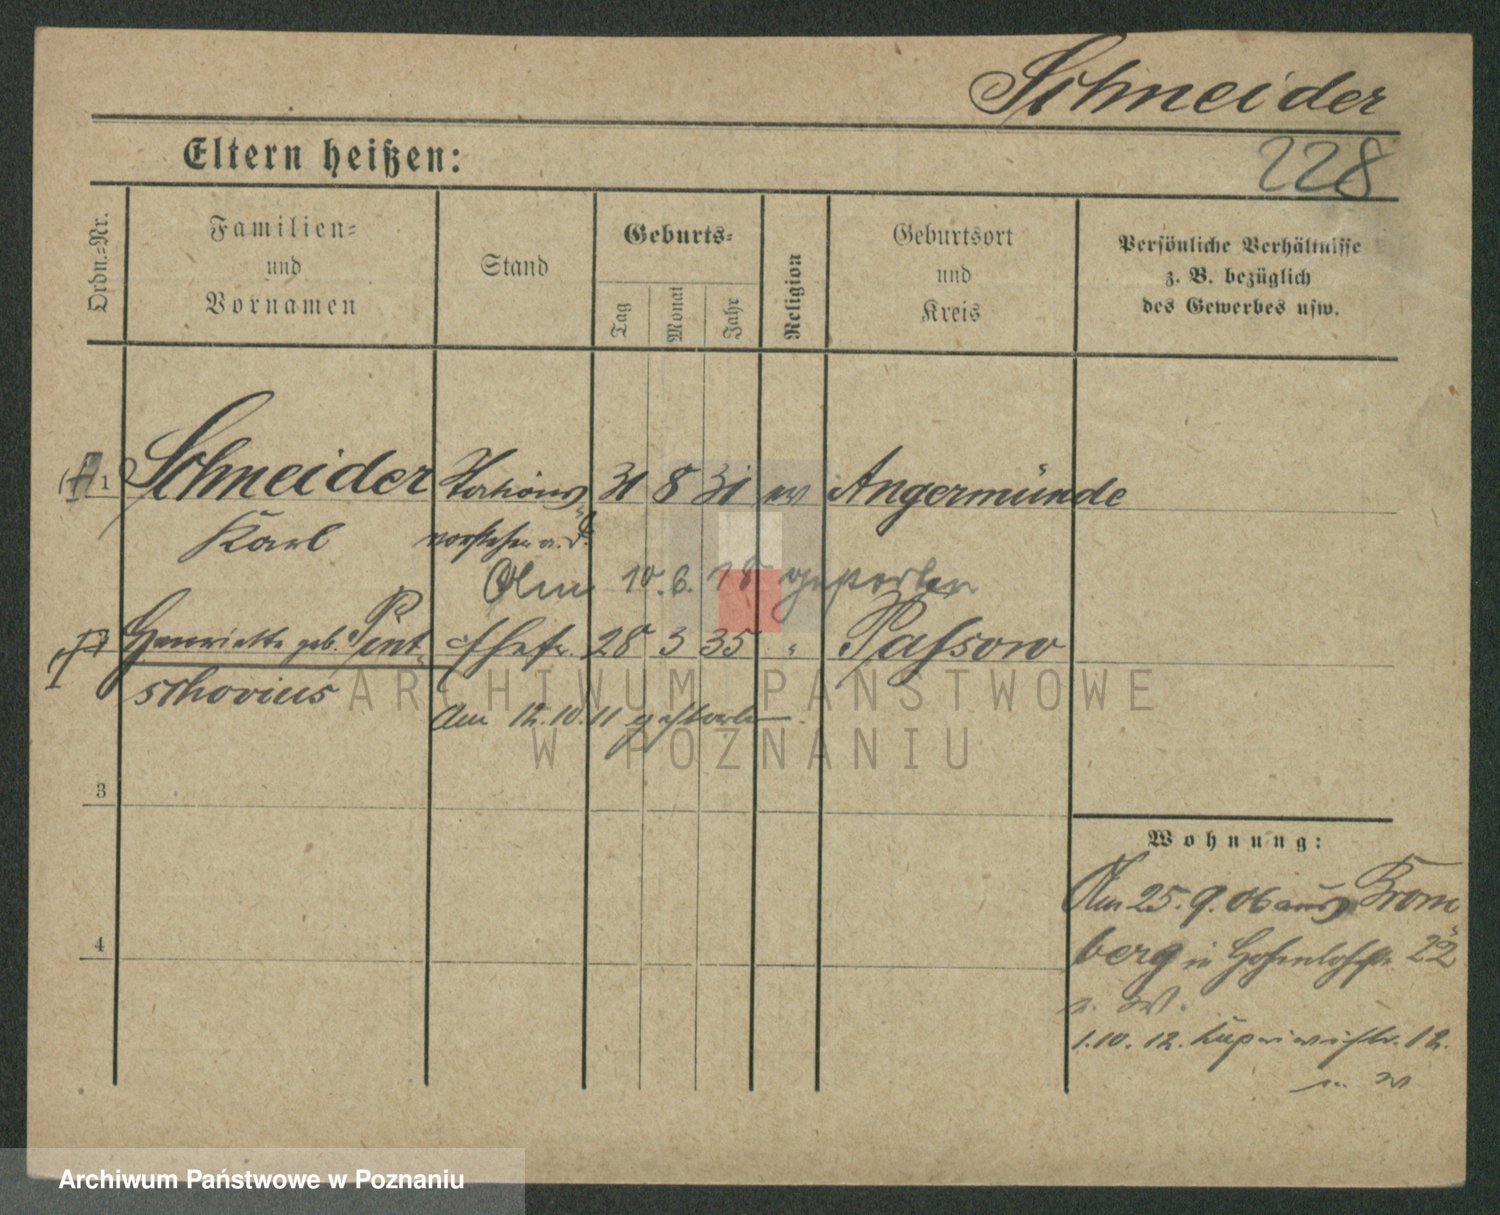 Schneider
Eltern heißen:
228
Ordn.=Nr.
Familien=
und
Vornamen
Stand
Geburts=
Tag
Monat
Jahr
Religion
Geburtsort
und
Kreis
Persönliche Verhältnisse
z. B. bezüglich
des Gewerbes usw.
1 Schneider Stations 31 8 31 ev Angermünde
Karl vorsteher a. D.
Am 10. 6. 18 gestorben
Henriette geb. Pent- Ehefr. 28 3 35 " Passow
schovius
Am 12. 10. 11 gestorben.
3
4
Wohnung:
Am 25. 9. 06 aus Brom
berg in Hohenlohestr 22
1. 10. 12. 12.
ARCHIWUM PAŃSTWOWE
W POZNANIU
Archiwum Państwowe w Poznaniu